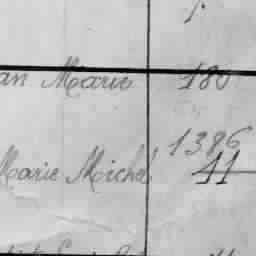 an Marie 180
1386
Marie Michel 11